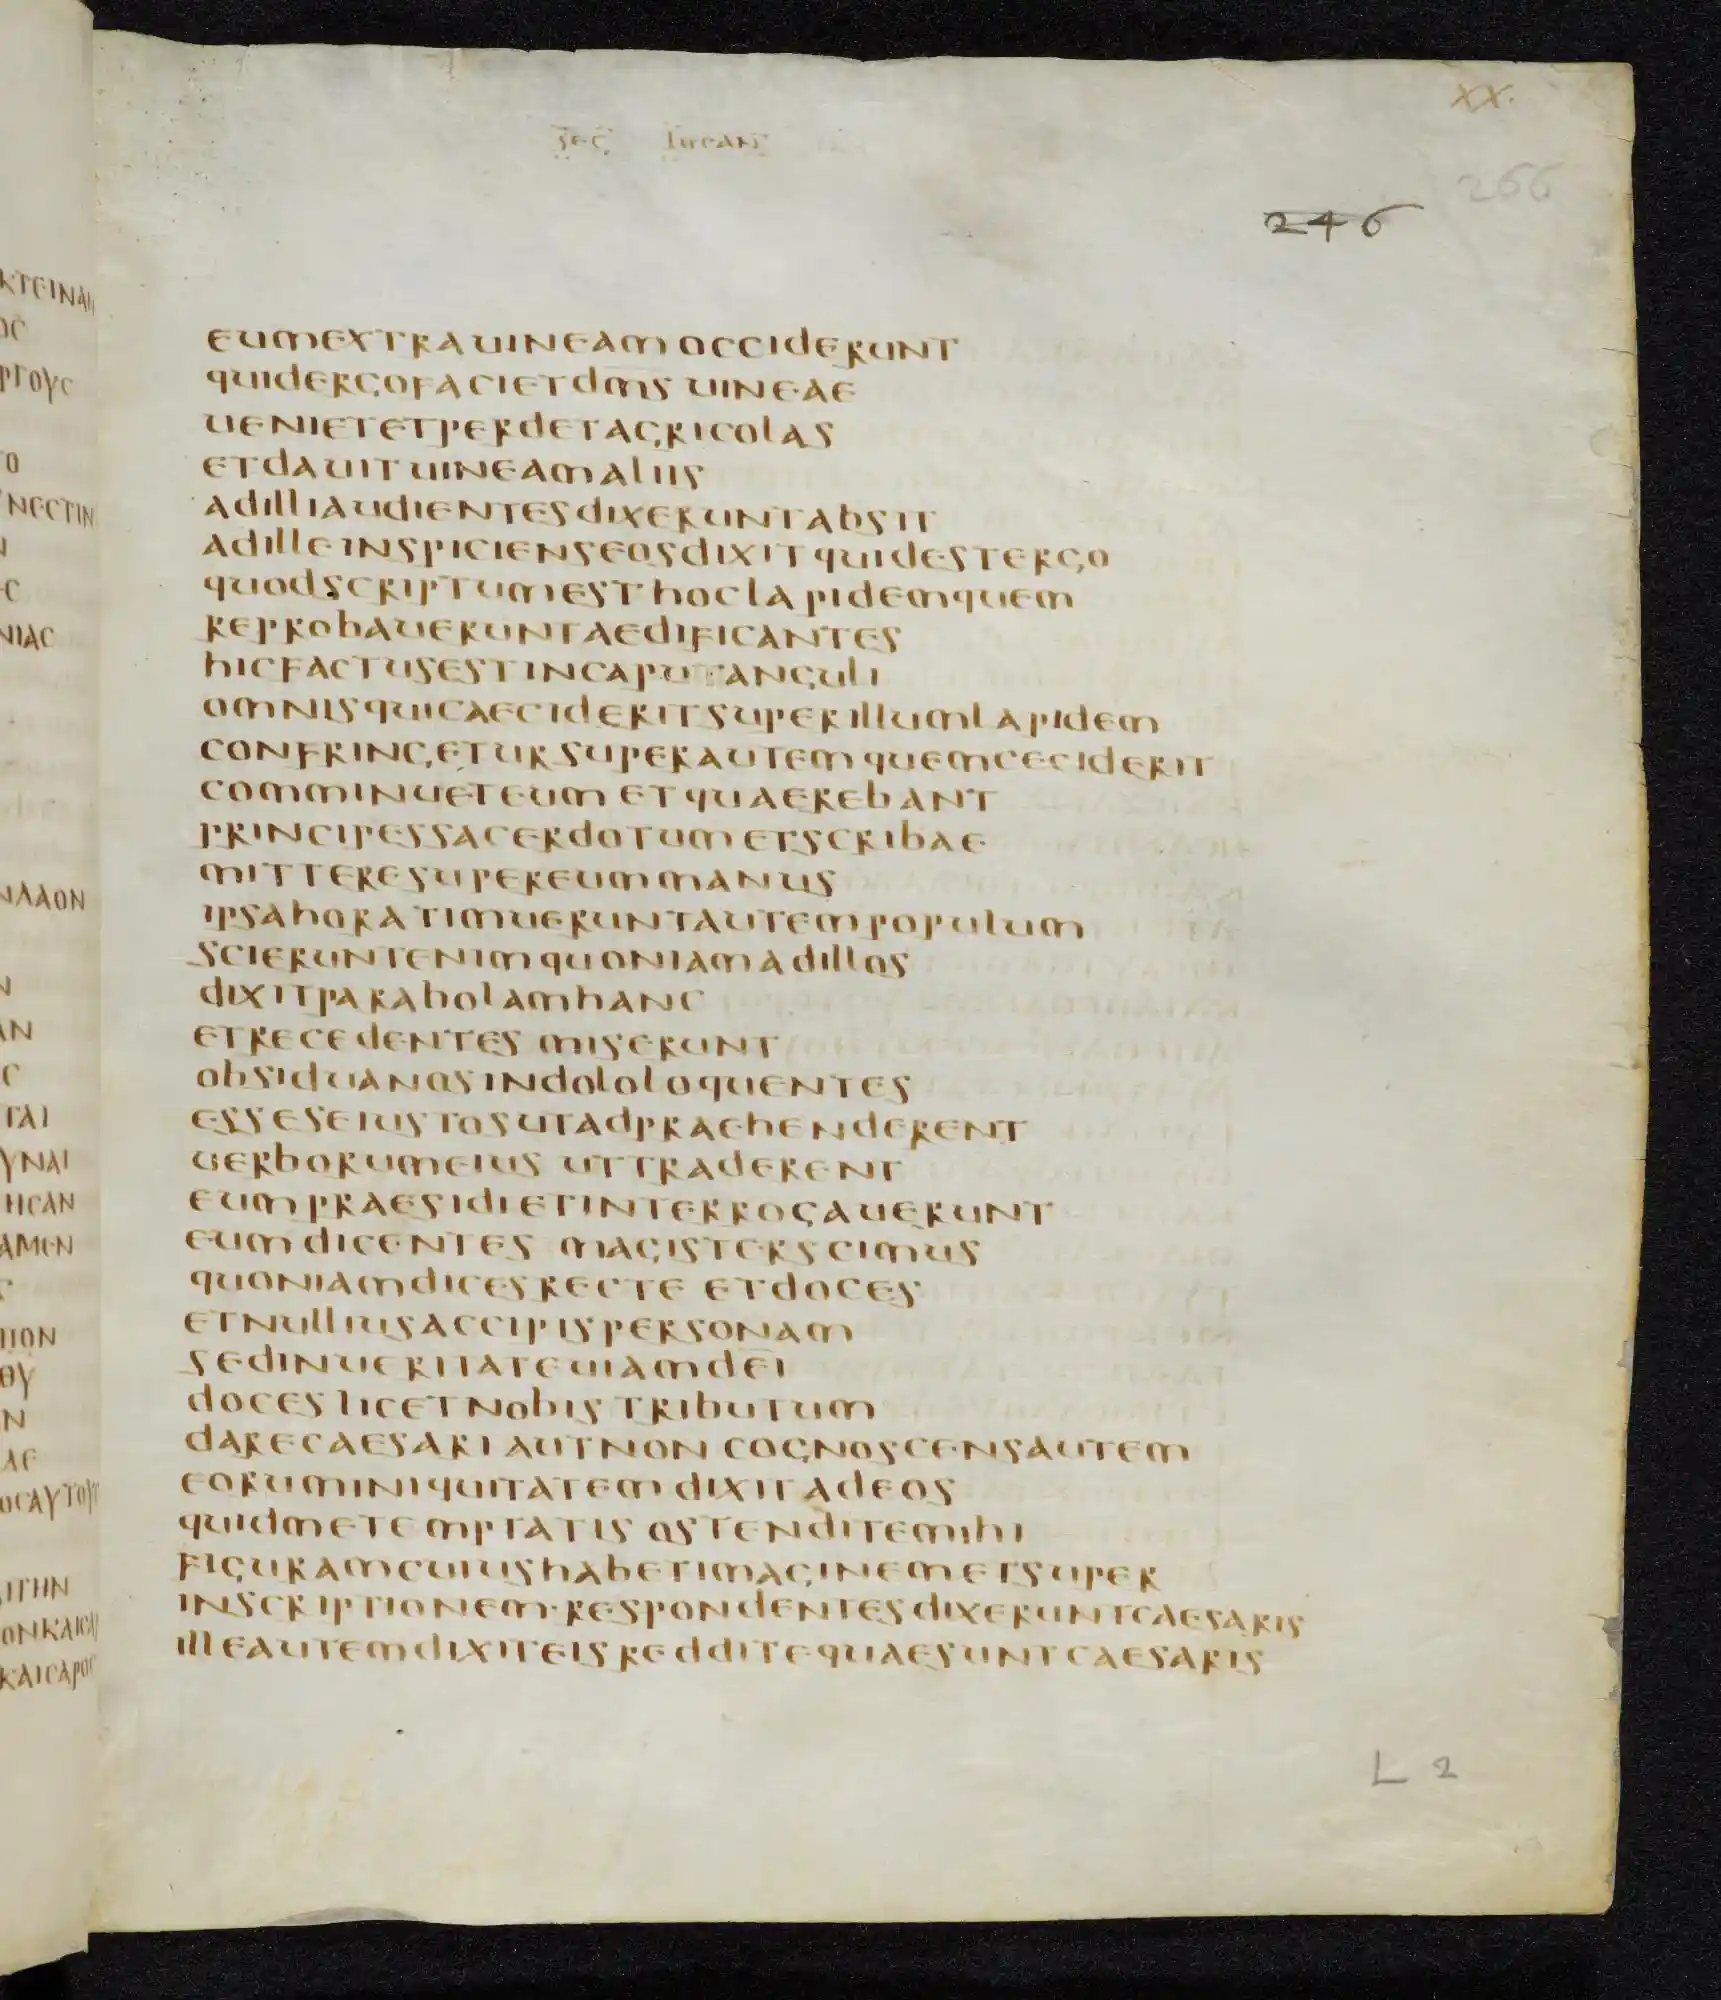 XX.
sec lucan
266
246
eumextrauineam occiderunt
quidergofaciet dm̅s uineae
uenietetperdetagricolas
etdauituineamaliis
adilliaudientesdixeruntabsit
adilleinspicienseosdixit quidestergo
quodscriptumest hoclapidemquem
reprobaueruntaedificantes
hicfactusestincaputanguli
omnisquicaecideritsuperillumlapidem
confringetursuperautemquemceciderit
comminueteum etquaerebant
principessacerdotumetscribae
mitteresupereummanus
ipsahoratimueruntautempopulum
scieruntenimquoniamadillos
dixitparabolamhanc
etrecedentes miserunt
obsiduanosindololoquentes
esseseiustosutadpraehenderent
uerborumeius uttraderent
eumpraesidietinterrogauerunt
eumdicentes magisterscimus
quoniamdicesrecte etdoces
etnulliusaccipispersonam
sedinueritateuiamdei
doces licetnobistributum
darecaesariautnon cognoscensautem
eoruminiquitatem dixitadeos
quidmetemptatis ostenditemihi
figuramcuiushabetimaginemetsuper
inscriptionem·respondentesdixeruntcaesaris
illeautemdixiteisredditequaesuntcaesaris
L 2
κτειναι
ος
ργους
το
νεστιν
ν
ς
νιας
νλαον
ν
αν
ς
ται
υναι
ησαν
αμεν
ς
πον
θυ
ν
λε
οσαυτους
ιτην
ονκαισα
καισαρος